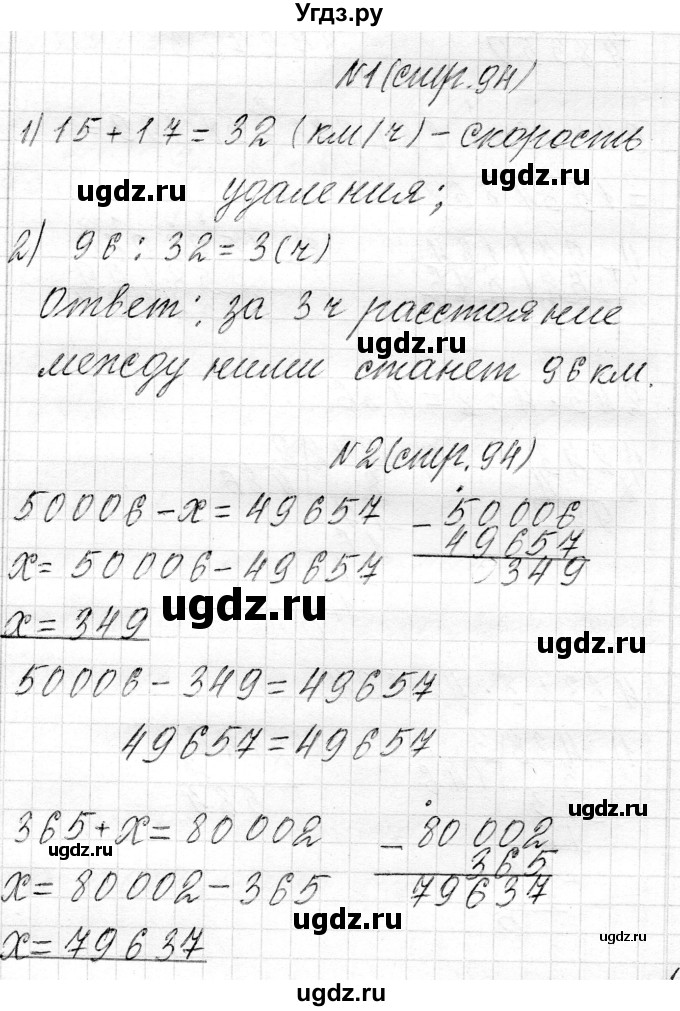 Угдз.ру
№1 (стр. 94)
1) 15 + 17 = 32 (км/ч) – скорость
ugdz.ru ugdz.ru
удаления;
2) 96 : 32 = 3 (ч)
Ответ: за 3ч расстояние
ugdz.ru
между ними станет 96 км.
№2 (стр. 94)
50006 – x = 49657
– 50006
49657
349
x = 50006 – 49657
ugdz.ru
x = 349
ugdz.ru
50006 – 349 = 49657
49657 = 49657
ugdz.ru
365 + x = 80002
– 80002
365
79637
ugdz.ru
x = 80002 – 365
ugdz.ru
x = 79637
ugdz.ru